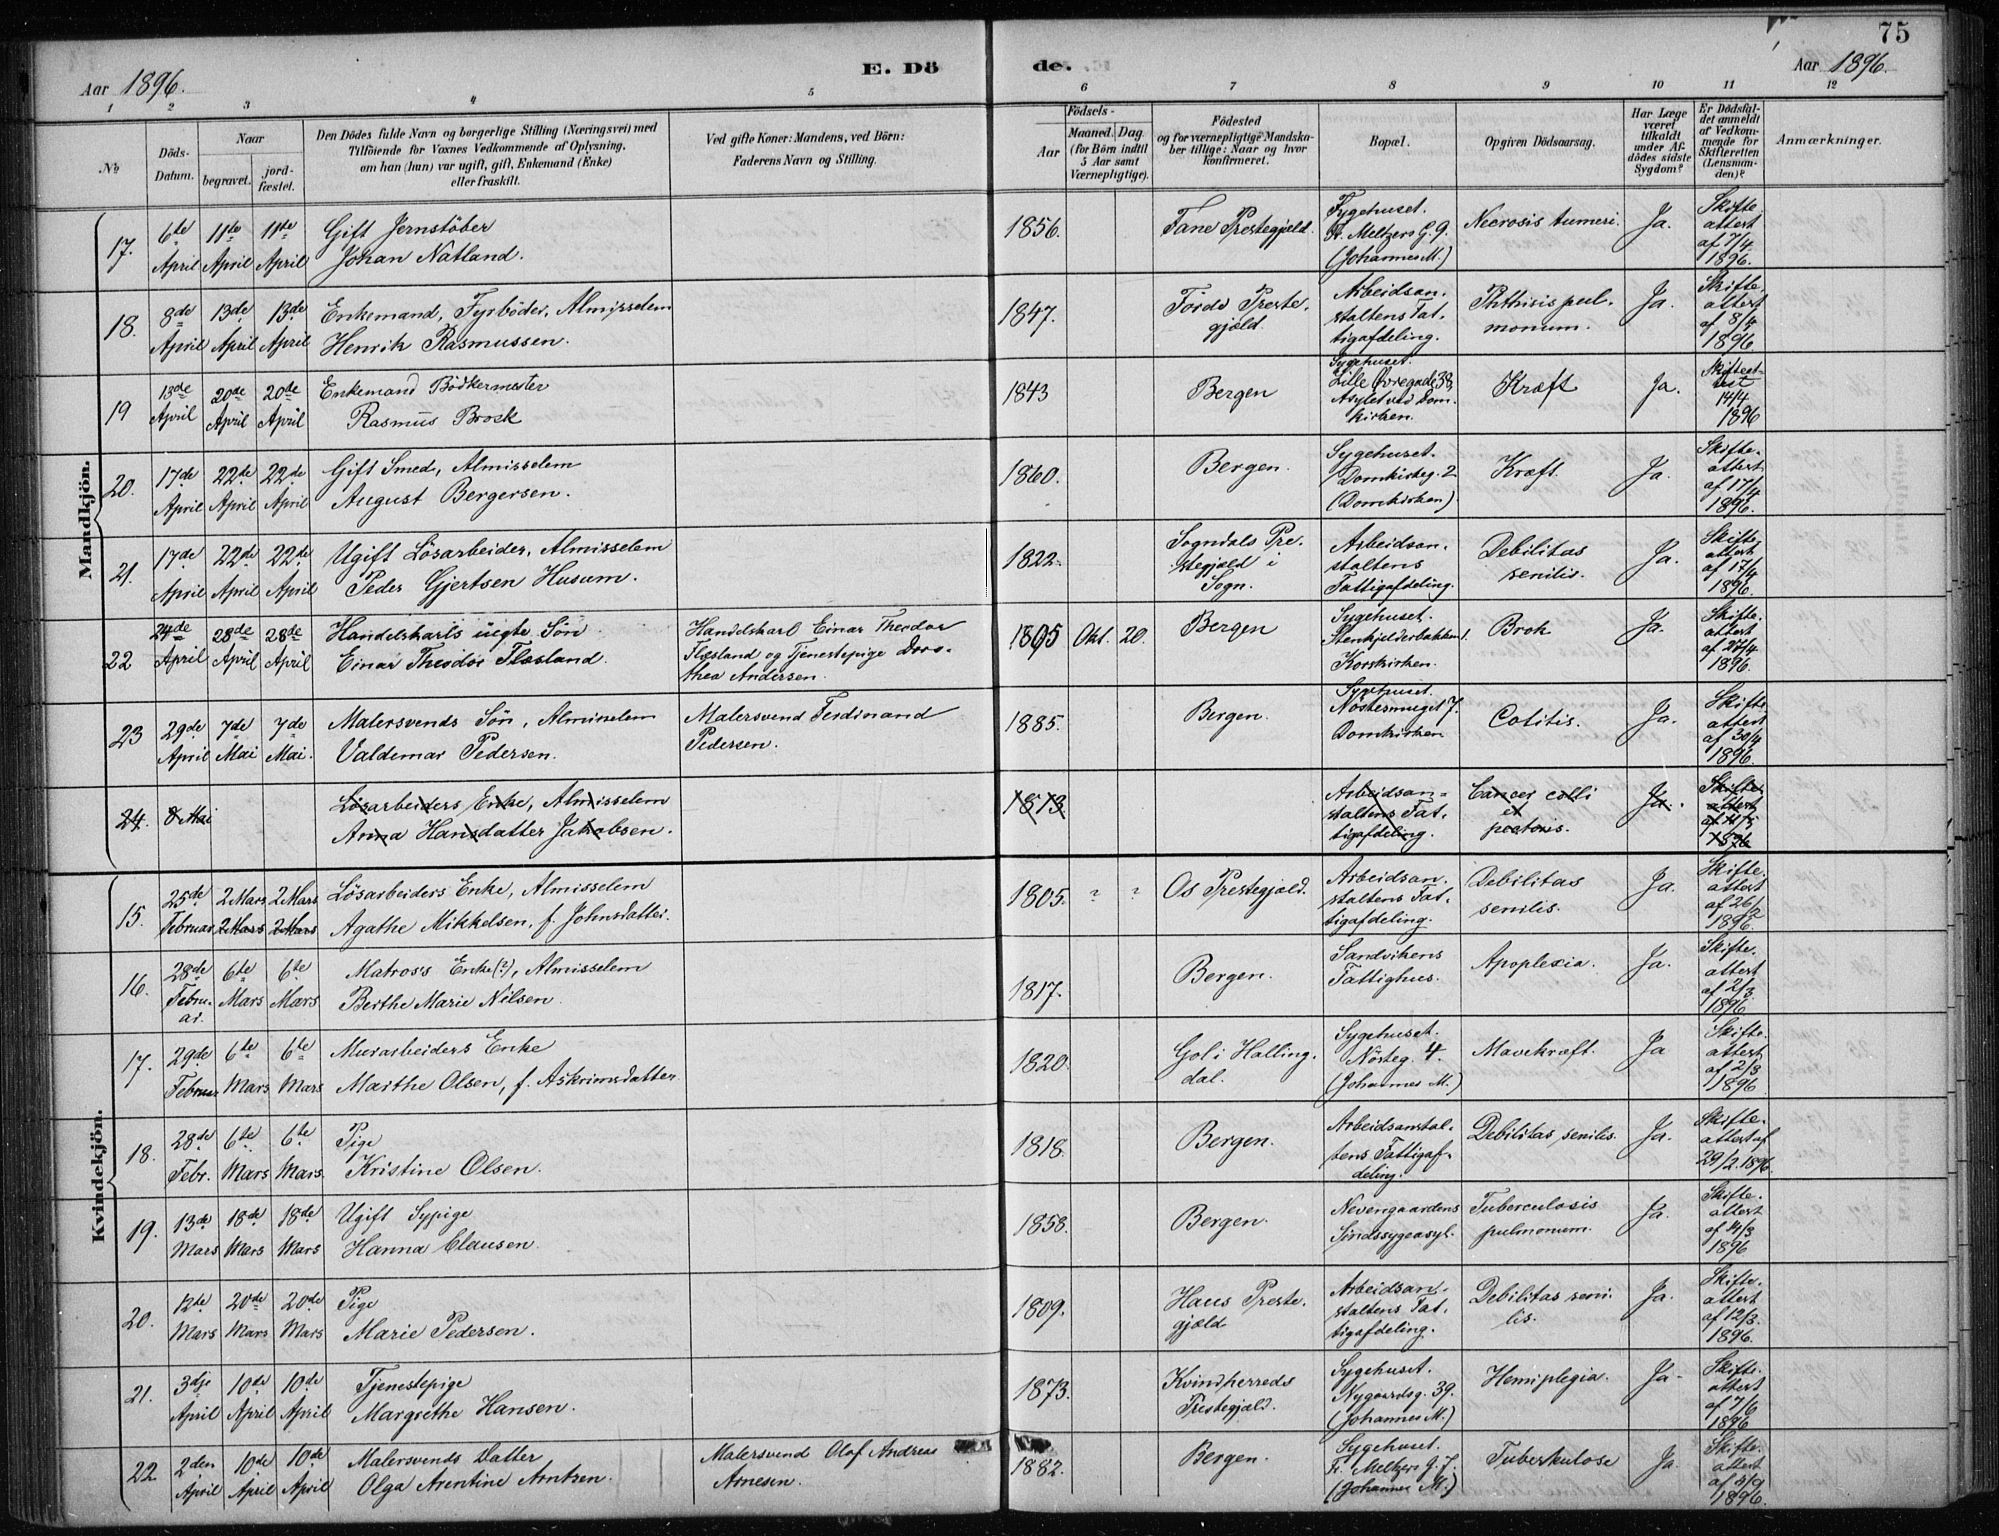 75
E. Dö de.
Aar 1896. Aar 1896.
1 2 3 4 5 6 7 8 9 10 11 12
No
Döds-Datum.
Naar
begravet. jord-fæstet.
Den Dödes fulde Navn og borgerlige Stilling (Næringsvei) med
Tilföiende for Voxnes Vedkommende af Oplysning,
om han (hun) var ugift, gift, Enkemand (Enke)
eller fraskilt.
Ved gifte Koner: Mandens, ved Börn:
Faderens Navn og Stilling.
Födsels-
Aar
Maaned. Dag.
(for Börn indtil
5 Aar samt
Værnepligtige).
Födested
og for værnepligtige Mandska-
ber tillige: Naar og hvor
konfirmeret.
Bopæl.
Opgiven Dödsaarsag.
Har Læge
været
tilkaldt
under Af-
dödes sidste
Sygdom?
Er Dödsfal-
det anmeldt
af Vedkom-
mende for
Skifteretten
(Lensman-
den)?
Anmærkninger.
Mandkjön.
17. 6te April 11te April 11te April
Gift Jernstöber
Johan Natland.
1856. Fane Prestegjeld.
Sygehuset.
Fr. Meltzers G. 9.
(Johannes M.)
Necrosis humeri. Ja.
Skifte-
attest
af 7/4
1896.
18. 8de April 13de April 13de April
Enkemand, Fyrböder, Almisselem
Henrik Rasmussen.
1847. Förde Preste-
gjeld.
Arbeidsan-
staltens Fat-
tigafdeling.
Phthisis pul-
monum. Ja.
Skifte-
attest
af 8/4
1896
19 13de April 20de April 20de April
Enkemand Bödkermester
Rasmus Brock
1843 Bergen
Sygehuset.
Lille Övregade 38
Asylet ved Dom-
kirken.
Kræft Ja.
Skifteat-
test
14/4
1896
20. 17de April 22de April 22de April
Gift Smed, Almisselem
August Bergersen.
1860. Bergen.
Sygehuset.
Domkirkeg. 2
(Domkirken)
Kræft. Ja.
Skifte-
attest
af 17/4
1896.
21. 17de April 22de April 22de April
Ugift Lösarbeider, Almisselem
Peder Gjertsen Husum.
1822. Sogndals Pre-
stegjeld i
Sogn.
Arbeidsan-
staltens
Fattigafdeling.
Debilitas
senilis. Ja.
Skifte-
attest
af 17/4
1896.
22 24de April 28de April 28de April
Handelskarls uegte Sön
Einar Theodor Flæsland.
Handelskarl Einar Theodor
Flæsland og Tjenestepige Doro-
thea Andersen.
1895 Okt. 20. Bergen
Sygehuset.
Stenkjelderbakken 1.
Korskirken.
Brok Ja.
Skifte-
attest
af 27/4
1896.
23 29de April 7de Mai 7de Mai.
Malersvends Sön, Almisselem
Valdemar Pedersen.
Malersvend Ferdinand
Pedersen.
1885. Bergen.
Sygehuset.
Nöstermuget 7.
Domkirken
Colitis. Ja.
Skifte-
attest
af 30/4
1896.
24. 8 Mai
Lösarbeiders Enke, Almisselem
Anna Hansdatter Jakobsen.
1813
Arbeidsan-
staltens Fat-
tigafdeling.
Cancer colli
et
pectoris. Ja.
Skifte-
attest
1896
Kvindekjön.
15. 25de Februar 2 Mars 2 Mars 2 Mars 2 Mars
Lösarbeiders Enke, Almisselem
Agathe Mikkelsen, f. Johnsdatter.
1805. ? ? Os Prestegjeld.
Arbeidsan-
staltens Fat-
tigafdeling.
Debilitas
senilis. Ja.
Skifte-
attest
af 26/2
1896.
16. 28de Febru-
ar. 6te Mars 6te Mars
Matross Enke (?), Almisselem
Berthe Marie Nilsen.
1817. Bergen.
Sandvikens
Fattighus.
Apoplexia. Ja.
Skifte-
attest
af 2/3
1896.
17. 29de Februar 6te Mars 6te Mars
Murarbeiders Enke
Marthe Olsen, f. Askrimsdatter
1820. Gol i Halling-
dal.
Sygehuset.
Nösteg. 4.
(Johannes M.)
Mavekræft. Ja
Skifte-
attest
af 2/3
1896
18. 28de Febr. 6te Mars 6te Mars.
Pige
Kristine Olsen.
1818. Bergen.
Arbeidsanstal-
tens Fattigaf-
deling.
Debilitas senilis. Ja.
Skifte-
attest af
29/2 1896
19. 13de Mars 18de Mars 18de Mars
Ugift Sypige
Hanna Clausen.
1858. Bergen.
Nevengaardens
Sindssygeasyl.
Tuberculosis
pulmonum. Ja.
Skifte-
attest
af 14/3
1896
20. 12te Mars 20de Mars 20de Mars
Pige
Marie Pedersen.
1809. Haus Preste-
gjeld.
Arbeidsan-
staltens Fat-
tigafdeling.
Debilitas seni-
lis. Ja.
Skifte-
attest
af 12/3.
1896.
21. 3dje April 10de April 10de April
Tjenestepige
Margrethe Hansen.
1873. Kvindherreds
Prestegjeld.
Sygehuset.
Nygaardsg. 39.
(Johannes M.)
Hemiplegia. Ja.
Skifte-
attest
1896
22 2den April 10de April 10de April
Malersvends Datter
Olga Arentine Arntzen.
Malersvend Olaf Andreas
Arnesen.
1882. Bergen.
Sygehuset.
Fr. Meltzers G. 7.
(Johannes M.)
Tuberkulose Ja.
Skifte-
attest
1896.